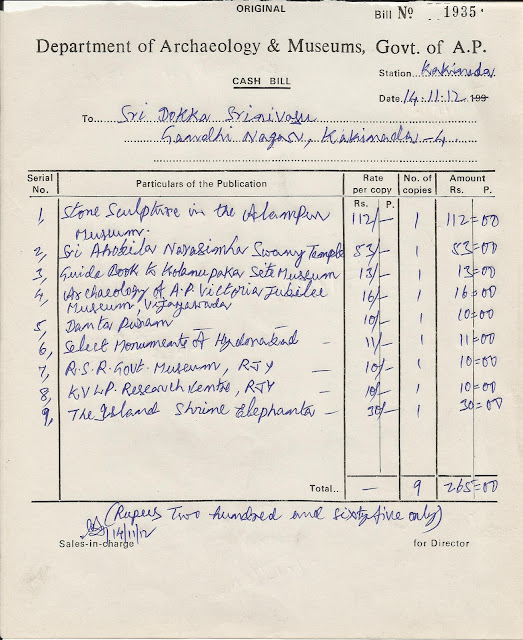 ORIGINAL
Bill No 1935
Department of Archaeology & Museums, Govt. of A.P.
Station Kakinada
CASH BILL
Date 14.11.12 199
To Sri Dokka Srinivasu
Gandhi Nagar, Kakinada-4
Serial No. Particulars of the Publication Rate per copy No. of copies Amount
Rs. P. Rs. P.
1, Stone Sculpture in the Alampur Museum. 112/- 1 112=00
2, Sri Ahobila Narasimha Swamy Temple 53/- 1 53=00
3, Guide Book to Kolanupaka Site Museum 13/- 1 13=00
4, Archaeology of A.P. Victoria Jubilee
Museum, Vijayawada 16/- 1 16=00
5, Danta Puram 10/- 1 10=00
6, Select Monuments of Hyderabad - 11/- 1 11=00
7, R.S.R. Govt. Museum, RJY - 10/- 1 10=00
8, Research Centre, RJY - 10/- 1 10=00
9, The Island Shrine Elephanta - 30/- 1 30=00
Total.. - 9 265=00
(Rupees Two hundred and sixty five only)
14/11/12
Sales-in-charge for Director